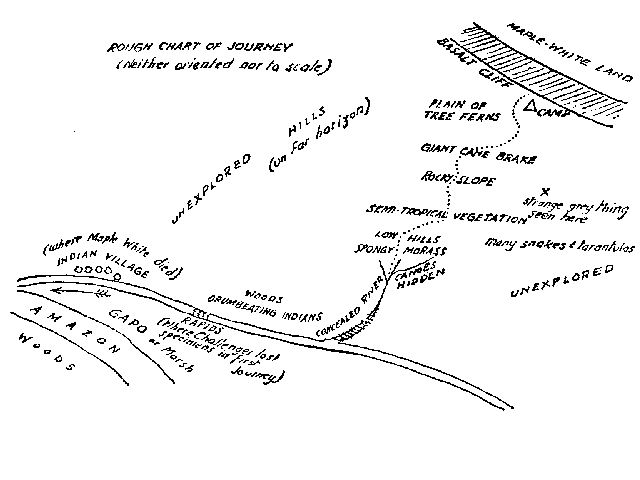 ROUGH CHART OF JOURNEY
(Neither oriented nor to scale)
MAPLE-WHITE LAND
BASALT CLIFF
CAMP
PLAIN OF
TREE FERNS
UNEXPLORED HILLS
(on far horizon)
GIANT CANE BRAKE
ROCKY SLOPE
x
strange grey thing
seen here
SEMI-TROPICAL VEGETATION
LOW HILLS
SPONGY MORASS
many snakes & tarantulas
CANOES
HIDDEN
UNEXPLORED
(where Maple White died)
INDIAN VILLAGE
WOODS
DRUMBEATING INDIANS
CONCEALED RIVER
RAPIDS
(Where Challenger lost
specimens in first
Journey)
GAPO
or Marsh
AMAZON
WOODS